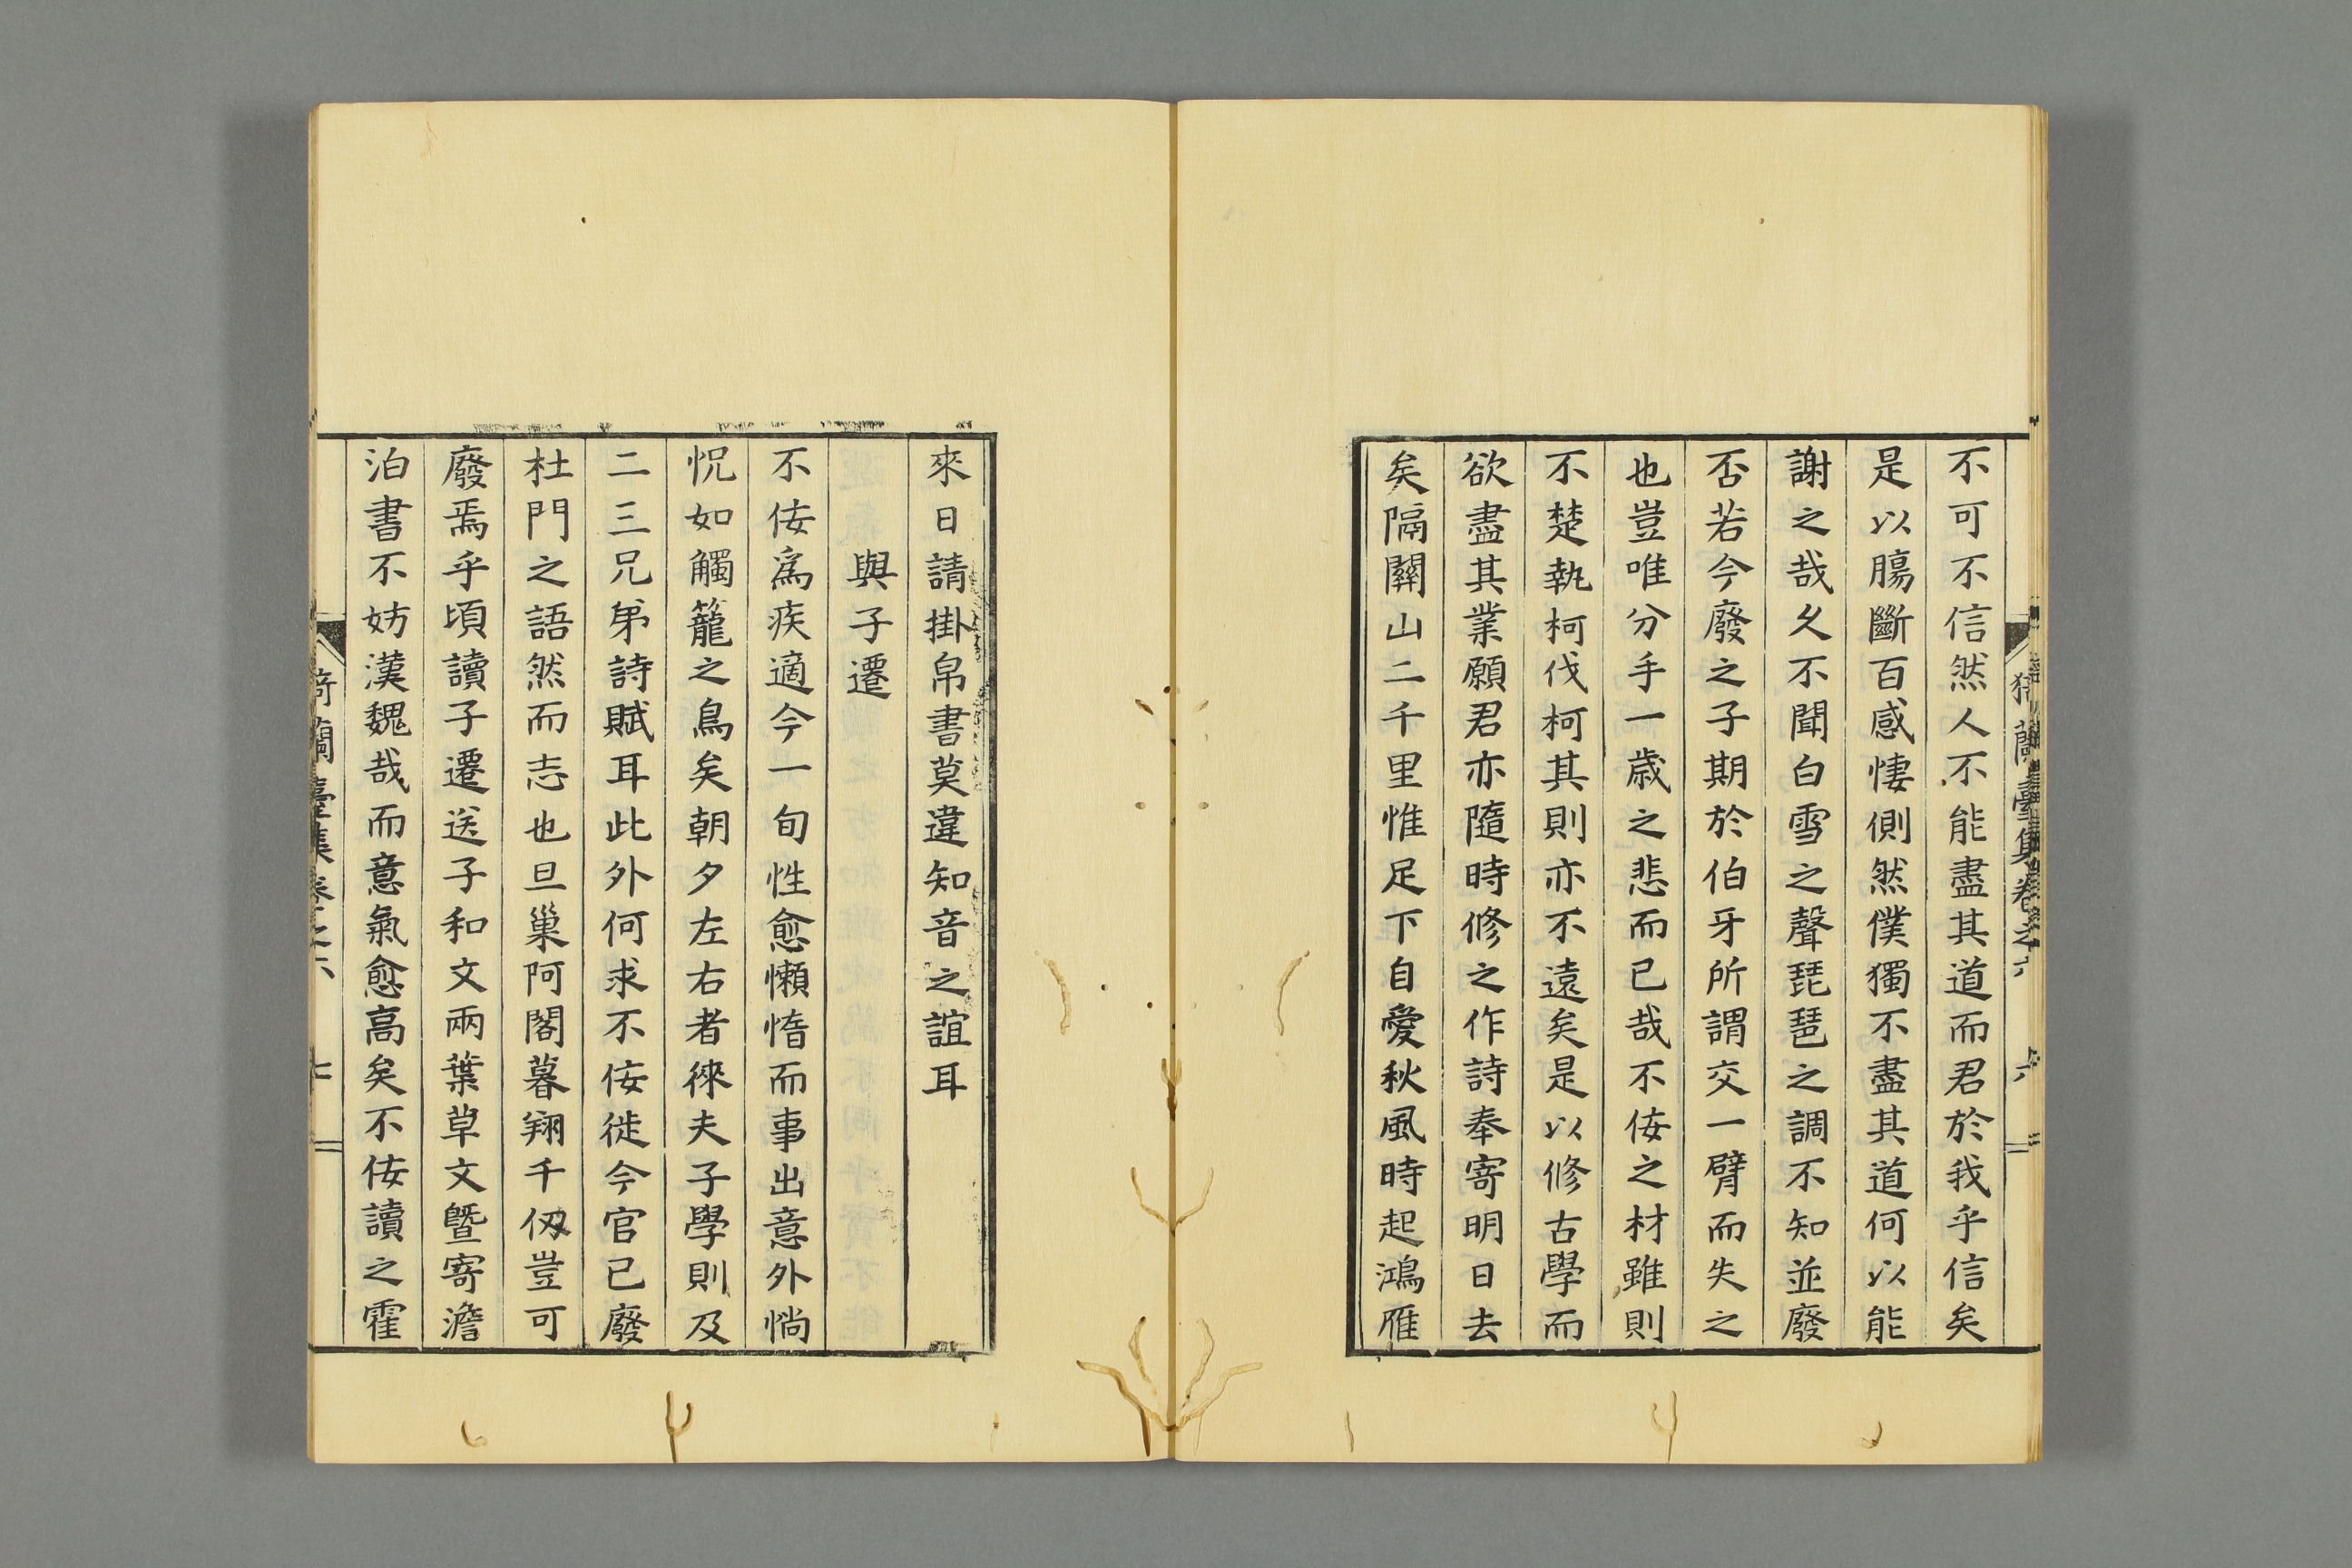 不可不信然人不能盡其道而君於我乎信矣
是以膓斷百感悽惻然僕獨不盡其道何以能
謝之哉久不聞白雪之聲琵琶之調不知並廢
否若今廢之子期於伯牙所謂交一臂而失之
也豈唯分手一歲之悲而已哉不佞之材雖則
不楚執柯伐柯其則亦不遠矣是以修古學而
欲盡其業願君亦隨時修之作詩奉寄明日去
矣隔關山二千里惟足下自愛秋風時起鴻雁
來日請掛帛書莫違知音之誼耳
與子遷
不佞爲疾適今一旬性愈懶惰而事出意外惝
怳如觸籠之鳥矣朝夕左右者徠夫子學則及
二三兄弟詩賦耳此外何求不佞徙今官已廢
杜門之語然而志也旦巢阿閣暮翔千仭豈可
廢焉乎頃讀子遷送子和文兩葉草文曁寄澹
泊書不妨漢魏哉而意氣愈高矣不佞讀之霍
猗蘭臺集卷之六 七